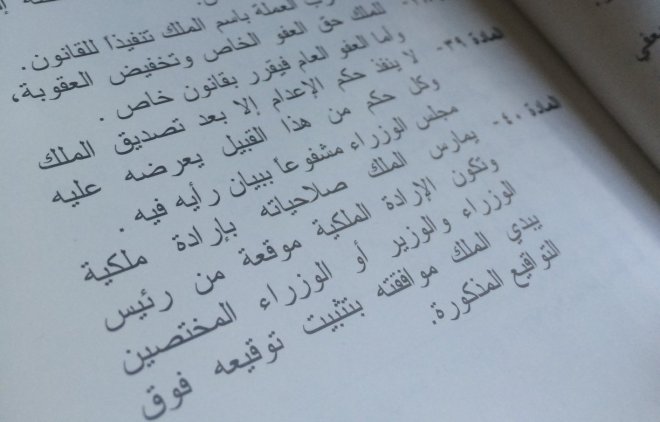 العملة باسم الملك تنفيذاً للقانون .
الملك حق العفو الخاص وتخفيض العقوبة،
وأما العفو العام فيقرر بقانون خاص .
المادة ٣٩- لا ينفذ حكم الإعدام إلا بعد تصديق الملك
وكل حكم من هذا القبيل يعرضه عليه
مجلس الوزراء مشفوعاً ببيان رأيه فيه .
المادة ٤٠- يمارس الملك صلاحياته بإرادة ملكية
وتكون الإرادة الملكية موقعة من رئيس
الوزراء والوزير أو الوزراء المختصين
يبدي الملك موافقته بتثبيت توقيعه فوق
التواقيع المذكورة.